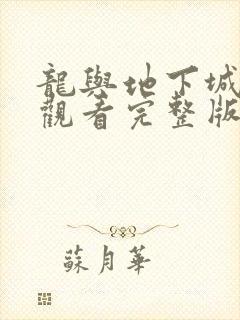 龍與地下城
觀看完整版
蘇月華